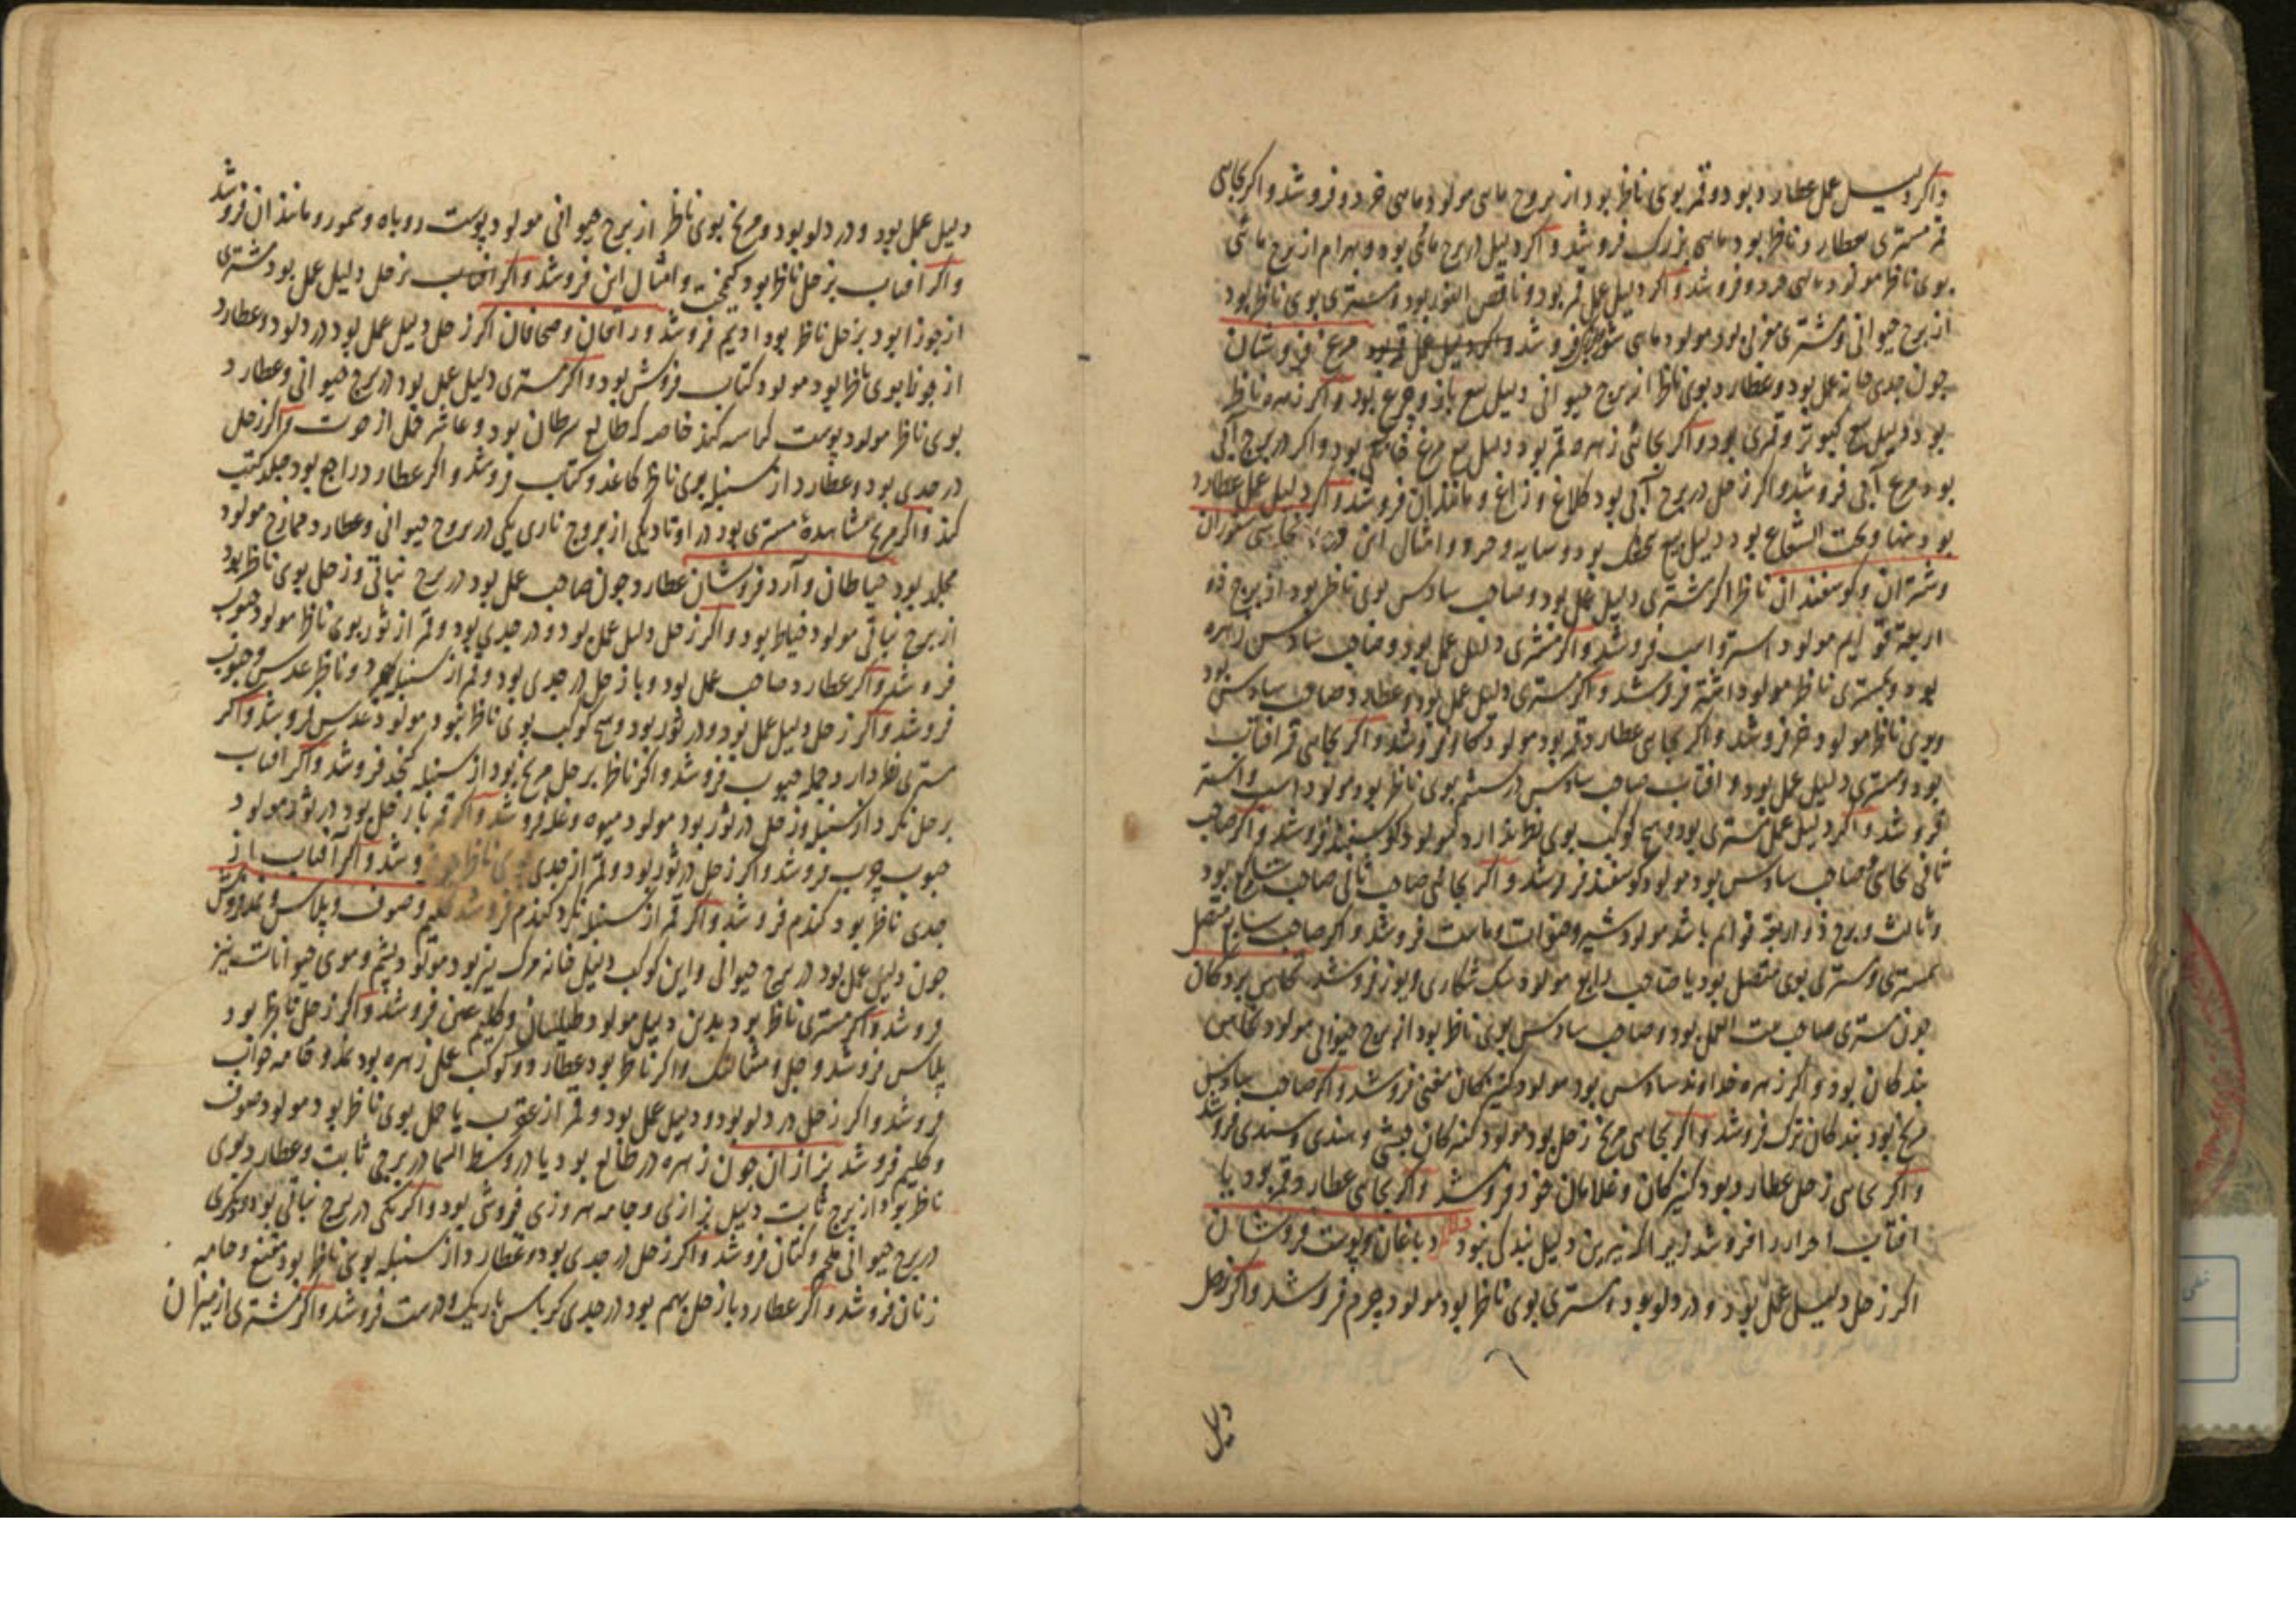 واکر دلیل عمل عطارد بود و قمر بوی ناظر بود از بروج مایی مولود ماهی خرد و فروشد و اکر بجای
قمر مشتری بعطارد ناظر بود ماهی بزرک فروشد و اکر دلیل در برج مائی بود و بهرام از برج مائی
بوی ناظر مولود ماهی خرد و فروشد و اکر دلیل عمل قمر بود و ناقص النور بود و مشتری بوی ناظر بود
از برج حیوانی و مشتری مولود ماهی شور فروشد مرغ فروشان
چون جدی خانه عمل بود و عطارد بوی ناظر از برج حیوانی دلیل بیع باز و چرغ بود و اکر زهره ناظر
بود دلیل بیع کبوتر و قمری بود و اکر بجای زهره قمر بود دلیل بیع مرغ خانکی بود و اکر در برج آبی
بود مرغ آبی فروشد و اکر زحل در برج آبی بود کلاغ و زاغ و مانند آن فروشد و اکر دلیل عمل عطارد
بود تنها و تحت الشعاع بود دلیل بیع بود و امثال این نخاسی ستوران
و شتران و کوسفندان ناظر اکر مشتری دلیل عمل بود و صاحب سادس بوی ناظر بود از برج ذو
اربعة قوایم مولود استر و اسب فروشد و اکر مشتری دلیل عمل بود و صاحب سادس زهره
بود و بمشتری ناظر مولود اشتر فروشد و اکر مشتری دلیل عمل بود و عطارد صاحب سادس بود
و بوی ناظر مولود خر فروشد و اکر بجای عطارد قمر بود مولود کاو فروشد و اکر بجای قمر افتاب
بود و مشتری دلیل عمل بود و افتاب صاحب سادس در ششم بوی ناظر بود مولود اسب و استر
فروشد و اکر دلیل عمل مشتری بود و هیچ کوکب بوی نظر ندارد مولود کوسفند فروشد و اکر صاحب
ثانی بجای صاحب سادس بود مولود کوسفند فروشد و اکر بجای صاحب ثانی صاحب بود
و ثالث و برج ذو اربعة قوایم باشد مولود شیر و ماست فروشد و اکر صاحب سابع متصل
بمشتری و مشتری بوی متصل بود یا صاحب رابع مولود سک شکاری و یوز فروشد نخاس بردکان
چون مشتری صاحب بیت العمل بود و صاحب سادس بوی ناظر بود از برج حیوانی مولود نخاس
بندکان بود و اکر زهره خداوند سادس بود مولود کنیزکان مغنی فروشد و اکر صاحب سادس
مریخ بود بندکان ترک فروشد و اکر بجای مریخ زحل بود مولود حبشی و هندی و سندی فروشد
و اکر بجای زحل عطارد بود کنیزکان و غلامان خرد فروشد و اکر بجای عطارد و قمر بود یا
افتاب احرار را فروشد زیرا که نیرین دلیل بندکی نبود دباغان و پوست فروشان
اکر زحل دلیل عمل بود و در دلو بود و مشتری بوی ناظر بود مولود چرم فروشد و اکر زحل
دلیل
دلیل عمل بود و در دلو بود و مریخ بوی ناظر از برج حیوانی مولود پوست روباه و سمور و مانند آن فروشد
و اکر افتاب بزحل ناظر بود کیمخت و امثال این فروشد و اکر افتاب بزحل دلیل عمل بود مشتری
از جوزا بود بزحل ناظر بود ادیم فروشد وراقان و صحافان اکر زحل دلیل عمل بود در دلو و عطارد
از جوزا بوی ناظر بود مولود کتاب فروش بود و اکر مشتری دلیل عمل بود در برج حیوانی و عطارد
بوی ناظر مولود پوست کند خاصه که طالع سرطان بود و عاشر حمل از حوت و اکر زحل
در جدی بود و عطارد از سنبله بوی ناظر کاغذ و کتاب فروشد و اکر عطارد راجع بود جلد کتب
کند و اکر مریخ مشاهده مشتری بود در اوتاد یکی از بروج ناری یکی در بروج حیوانی و عطارد ممازج مولود
مجلد بود خیاطان و آرد فروشان عطارد چون صاحب عمل بود در برج نباتی و زحل بوی ناظر بود
از برج نباتی مولود خیاط بود و اکر زحل دلیل عمل بود و در جدی بود و قمر از ثور بوی ناظر مولود حبوب
فروشد و اکر عطارد صاحب عمل بود و با زحل در جدی بود و قمر از سنبله بود و ناظر عدس و حبوب
فروشد و اکر زحل دلیل عمل بود و در ثور بود و هیچ کوکب بوی ناظر نبود مولود عدس فروشد و اکر
مشتری نظر دارد جمله حبوب فروشد و اکر ناظر بزحل مریخ بود از سنبله کنجد فروشد و اکر افتاب
بزحل نکرد از سنبله و زحل در ثور بود مولود میوه و غله فروشد و اکر قمر با زحل بود در ثور مولود
حبوب فروشد و اکر زحل در ثور بود و قمر از جدی بوی ناظر فروشد و اکر آفتاب از
جدی ناظر بود کندم فروشد و اکر قمر از سنبله نکرد کندم فروشد کلیم و صوف و پلاس و نمد فروش
چون دلیل عمل بود در برج حیوانی و این کوکب دلیل خانه مرک نیز بود مولود پشم و موی حیوانات نیز
فروشد و اکر مشتری ناظر بود بدین دلیل مولود طیلسان و کلیم فروشد و اکر زحل ناظر بود
پلاس فروشد و جل و و اکر ناظر بود عطارد و کوکب عمل زهره بود نمد و جامه خواب
فروشد و اکر زحل در دلو بود و دلیل عمل بود و قمر از عقرب یا حمل بوی ناظر بود مولود صوف
و کلیم فروشد بزازان چون زهره در طالع بود یا در وسط السما در برجی ثابت و عطارد بوی
ناظر بود از برج ثابت دلیل بزازی و جامه فروشی بود و اکر یکی در برج نباتی بود و دیکری
در برج حیوانی و کتان فروشد و اکر زحل در جدی بود و عطارد از سنبله بوی ناظر بود مقنع و جامه
زنان فروشد و اکر عطارد با زحل بهم بود در جدی کرباس باریک و درست فروشد و اکر مشتری از میزان